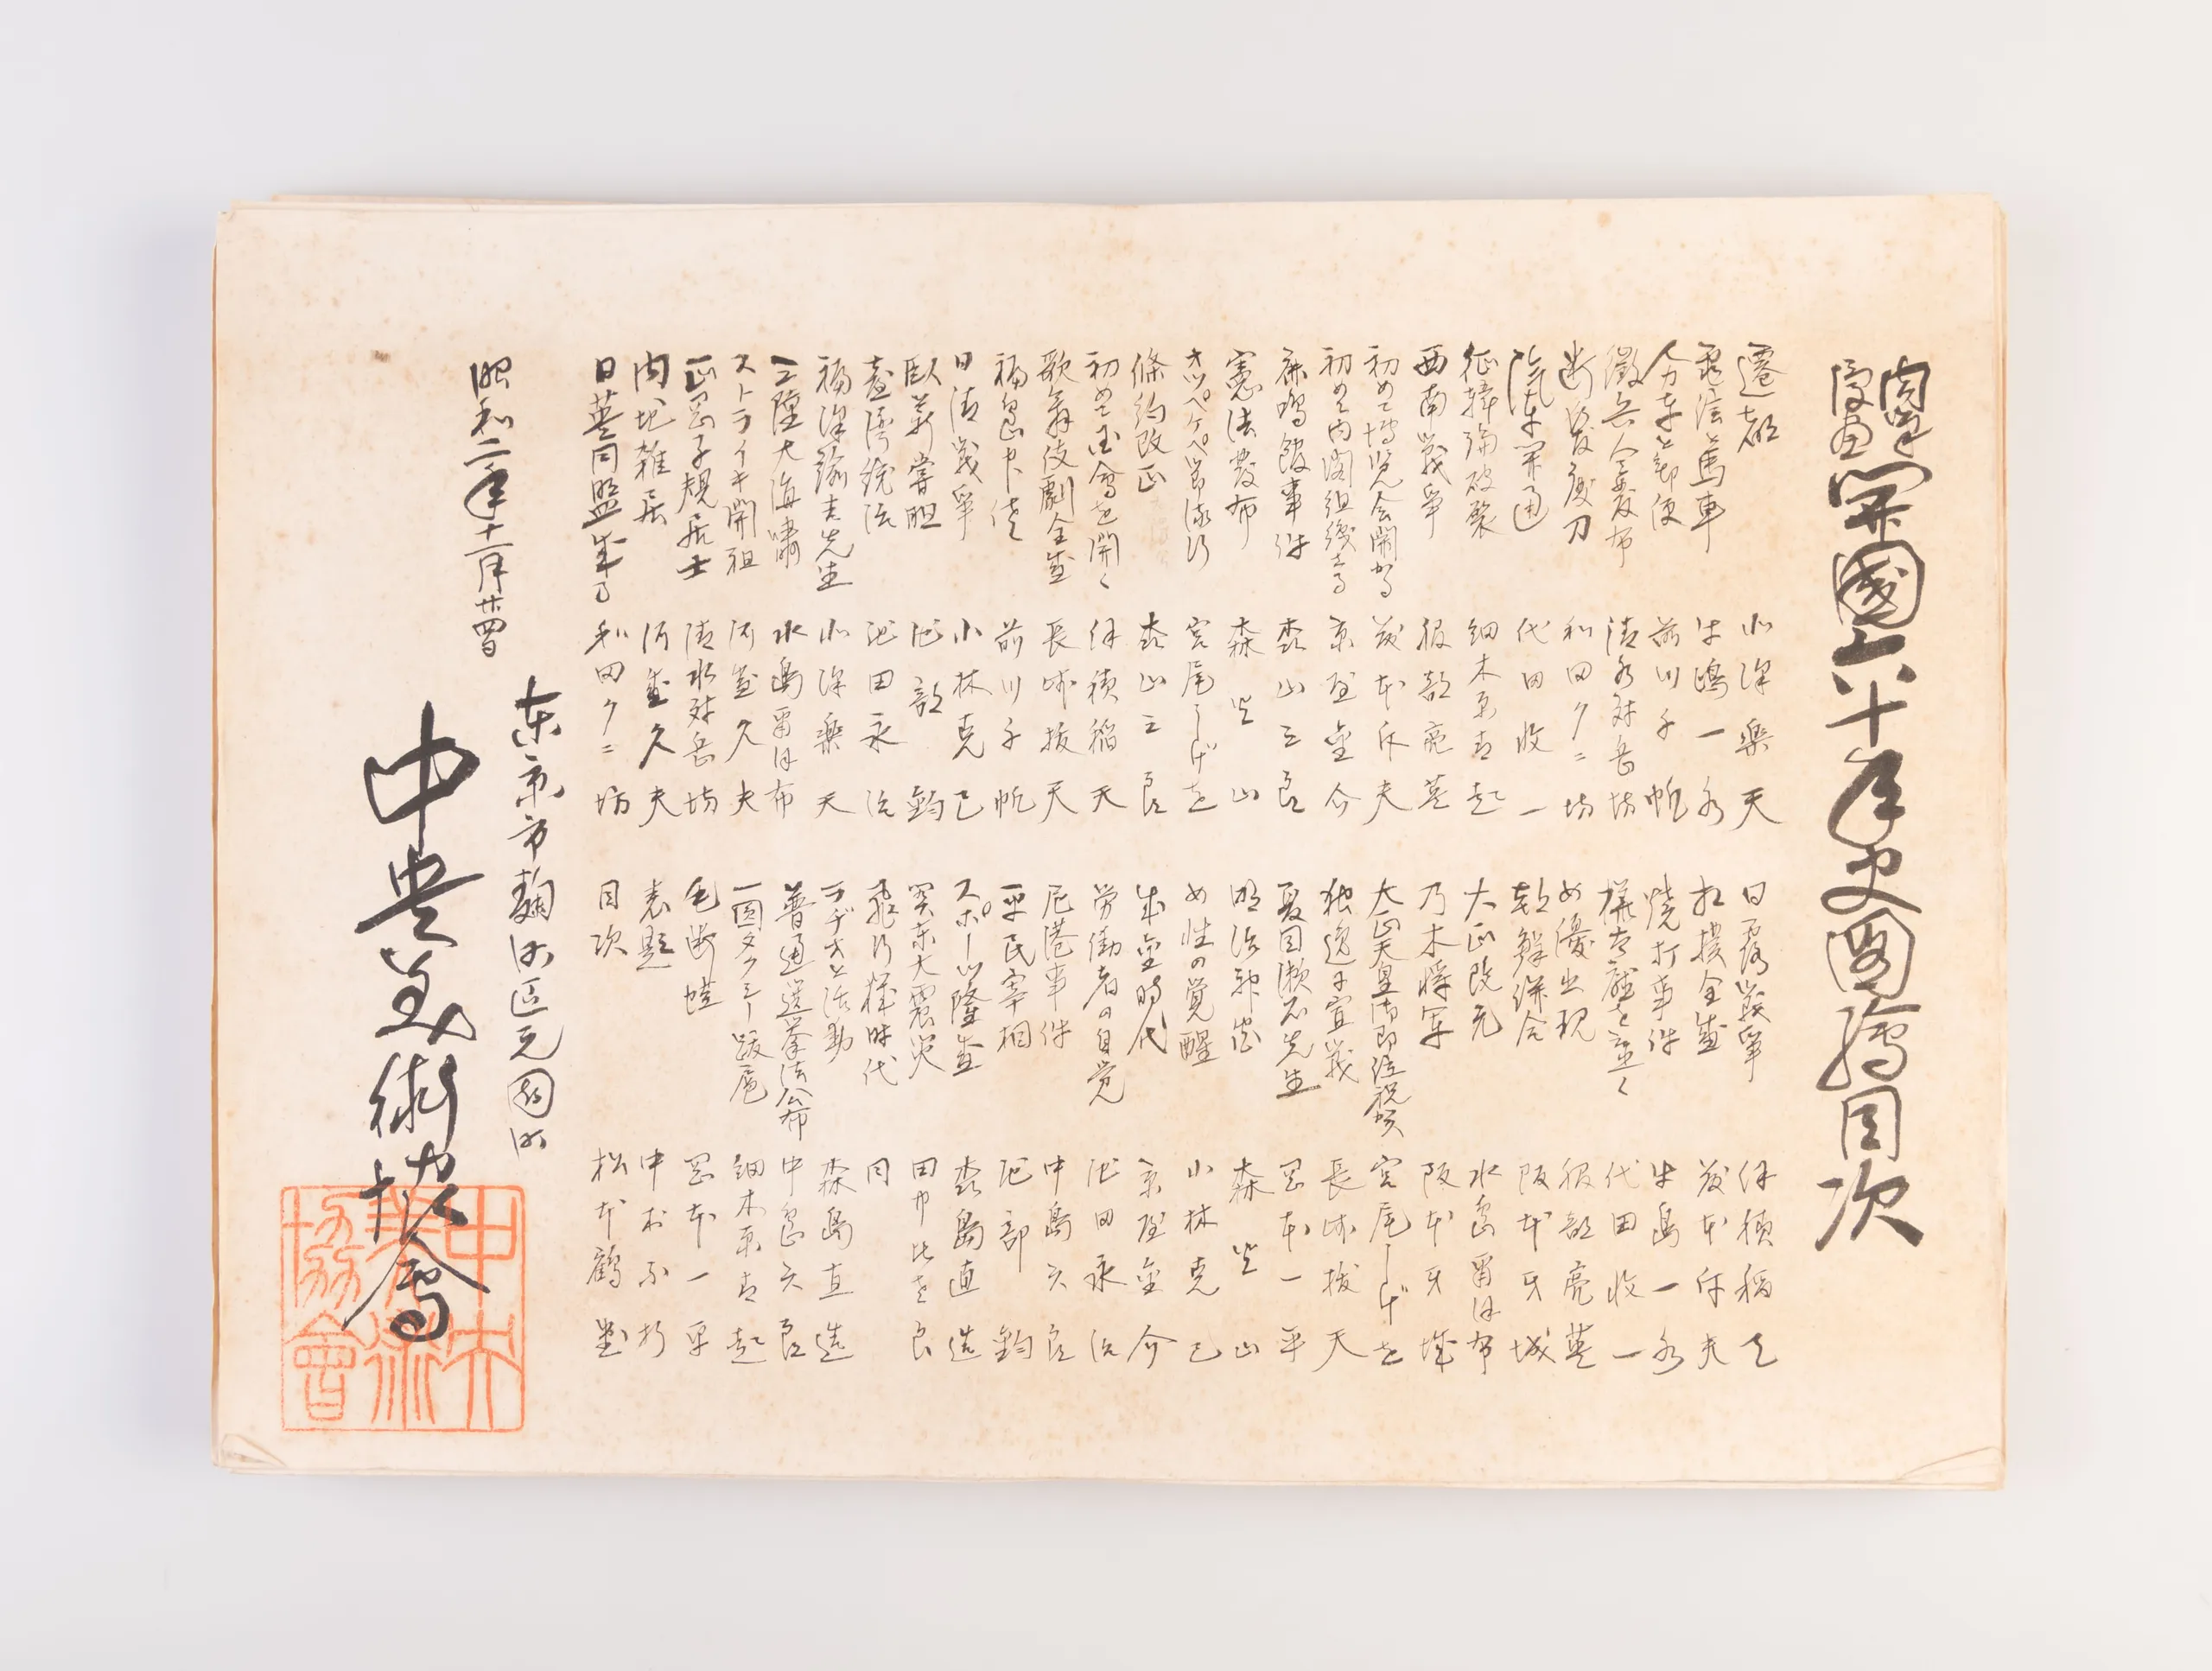 漫画
開國六十年史圖繪目次
遷都 北澤楽天
電信と馬車 牛嶋一水
人力車と郵便 前川千帆
徴兵令発布 清水対岳坊
断髪廃刀 和田クニ坊
陸蒸汽車開通 代田收一
征韓論破裂 細木原青起
西南戦争 服部亮英
初めて博覧会開かる 宍戸左行
初めて内閣組織さる 宍戸左行
鹿鳴館事件 森山三良
憲法発布 森 火山
オッペケペ節流行 宮尾しげを
條約改正 森山三良
初めて国会を開く 保積稲天
歌舞伎劇全盛 長崎抜天
福島中佐 前川千帆
日清戦争 小林克己
臥薪嘗胆 池部鈞
臺湾統治 池田永治
福澤諭吉先生 北澤楽天
三陸大海嘯 水島爾保布
ストライキ開祖 河盛久夫
正岡子規居士 清水対岳坊
内地雑居 河盛久夫
日英同盟成る 和田クニ坊
日露戦争 保積稲天
相撲全盛
焼打事件 牛島一水
樺太庁を置く 代田收一
女優出現 服部亮英
朝鮮併合 阪本牙城
大正改元 水島爾保布
乃木将軍 阪本牙城
大正天皇御即位祝賀 宮尾しげを
独逸に宣戦 長崎抜天
夏目漱石先生 岡本一平
明治神宮 森 火山
女性の覚醒 小林克己
成金時代
労働者の自覚 池田永治
尼港事件 中島六良
平民宰相 池部鈞
スポーツ隆盛 森島直造
関東大震災 田中比左良
飛行機時代 同
ラヂオと活動 森島直造
普通選挙法公布 中島六良
一圓タクシー跋扈 細木原青起
毛断蛙 岡本一平
表題 中村不折
目次 松本鶴
昭和二年十二月廿四日
東京市麹町区元園町
中央美術協會
中央美術協會